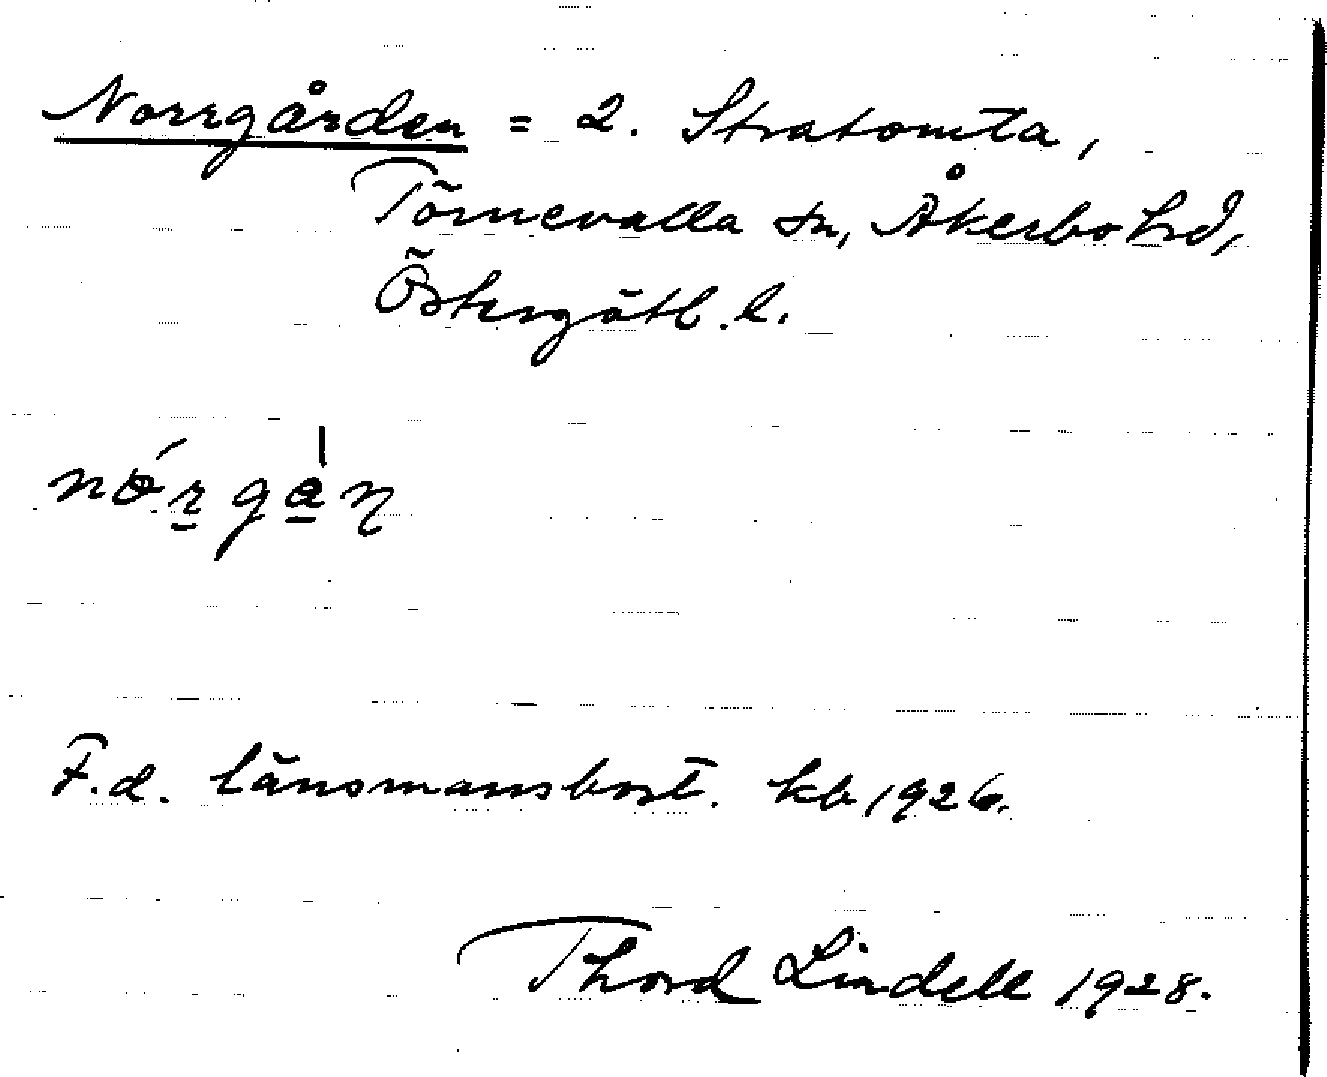 Norrgården = 2. Stratomta,
Törnevalla sn, Åkerbo hd,
Östergötl. l.
F.d. länsmansbost. kb. 1926.
Thord Lindell 1928.